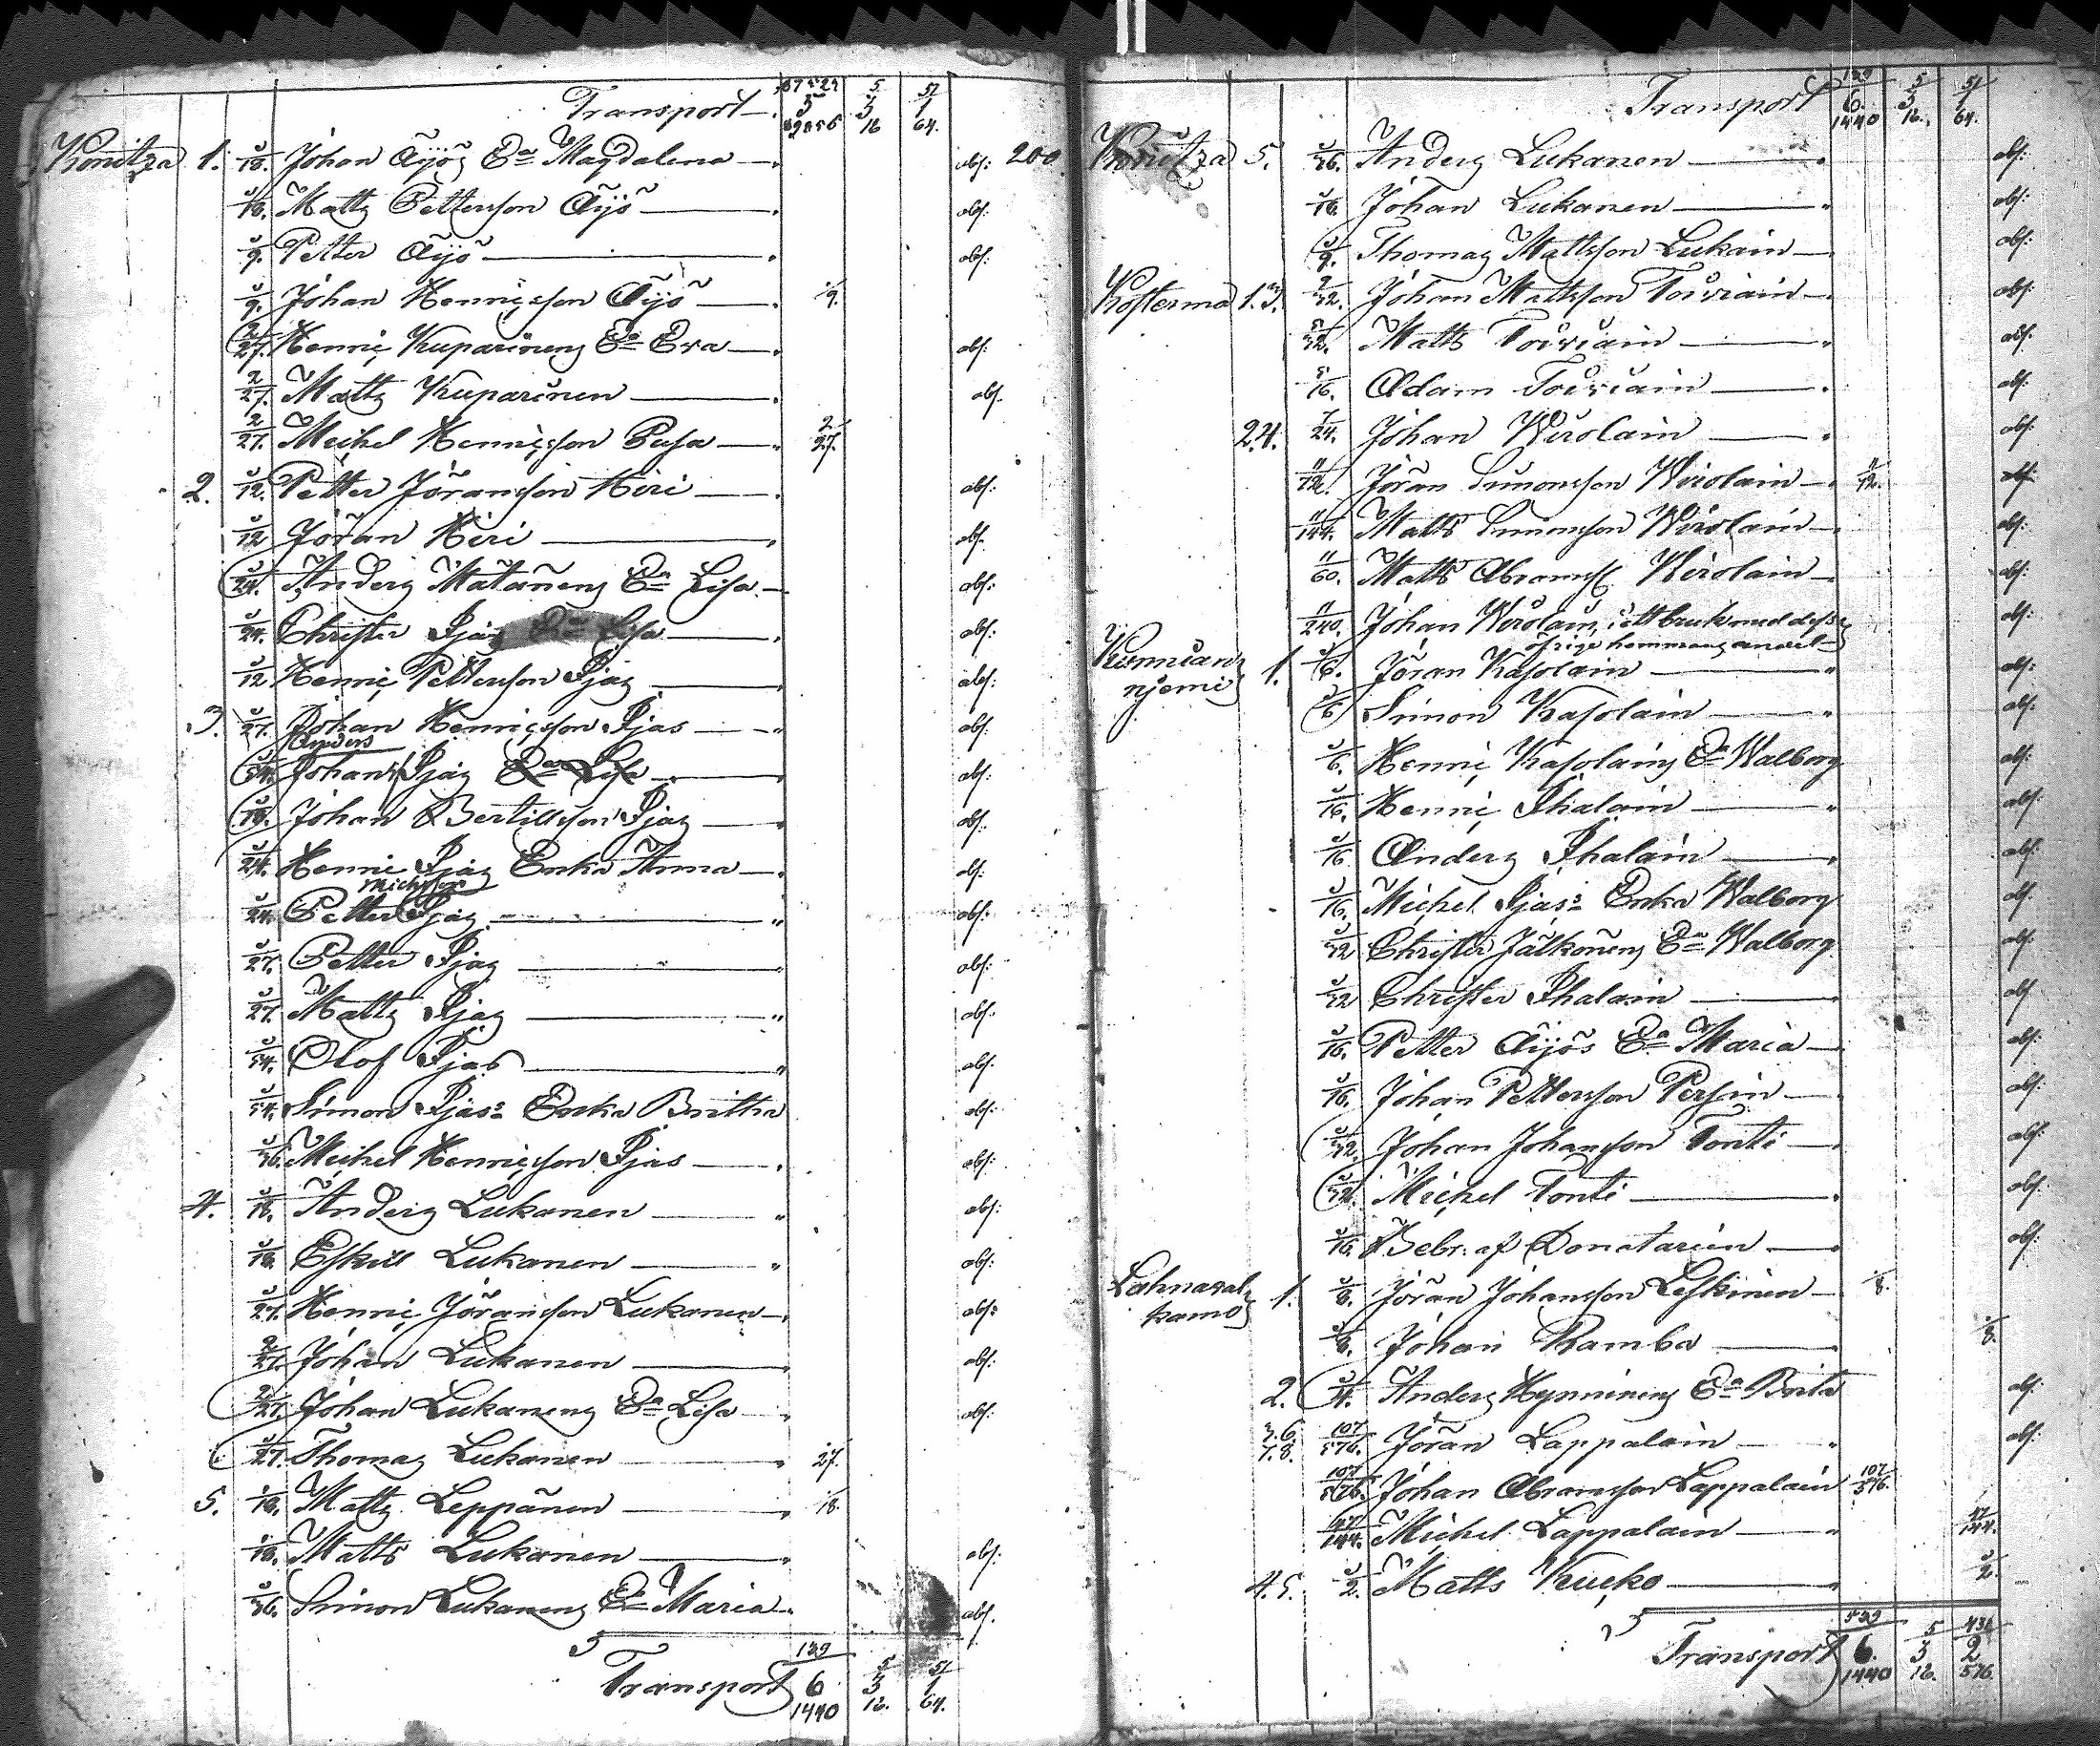 Transport 3 3 1
16 64.
Konitza 1. Johan Äijös E:a Magdalena abs: 200
1/18. Matts Pettersson Äijö abs:
1/9. Petter Äijö abs:
1/9. Johan Henricsson Äijö 1/9.
2/27. Henric Kuparinens E:a Eva abs:
2/27. Matts Kuparinen abs.
2/27. Michel Henricsson Pusa 2/27.
2. 1/12. Petter Jöransson Hiri abs:
1/12 Jöran Hiri abs.
1/24. Anders Matanens E:a Lisa abs:
1/24. Christer Ijäs E:a Lisa abs:
1/12 Henric Pettersson Ijäs abs:
3. 1/27. Johan Henricsson Ijas abs.
Anders
1/54. Johans Ijäs E:a Lisa abs:
1/18. Johan Bertilsson Ijäs abs:
1/24. Henric Ijäs Enka Anna abs:
Michelsson
1/24. Petter Ijäs abs:
1/27. Petter Ijäs abs:
1/27. Matts Ijäs abs:
1/54. Olof Ijäs abs:
1/54. Simon Ijäs: Enka Britha abs:
1/36. Michel Henricsson Ijäs abs:
4. 1/18. Anders Lukanen abs:
1/18. Eskill Lukanen abs:
1/27. Henric Jöransson Lukanen abs:
2/27. Johan Lukanen abs:
2/27. Johan Lukanens E:a Lisa abs:
1/27. Thomas Lukanen 1/27.
5. 1/18. Matts Leppänen 1/18.
1/18. Matts Lukanen abs:
1/36. Simon Lukanens E:a Maria abs.
139 5 51
Transport 6 3 1
1440 16. 64.
139 5 51
Transport 6. 3 1
1440 16. 64.
Konitza 5. 1/36. Anders Lukanen abs:
1/18. Johan Lukanen abs:
1/9. Thomas Mattsson Lukain abs:
Kosterma 1.3. Johan Mattsson Toiviain abs:
5/32. Matts Toiviain abs:
5/16. Adam Toiviain abs:
2.4. 7/24. Johan Wirolain abs:
11/72. Jöran Simonsson Wirolain 11/72. abs:
11/144. Matts Simonsson Wirolain abs:
11/60. Matts Abramss: Wirolain abs:
11/240. Johan Wirolain, i ett bruk med dess abs:
öfrige hemmans andel
Kunnian
njemi 1. 1/6. Jöran Kasolain abs:
1/6 Simon Kasolain abs:
1/6. Henric Kasolains E:a Walborg abs:
1/16. Henric Ihalain abs:
1/16 Anders Ihalain abs:
1/16. Michel Ijäs: Enka Walborg abs:
1/32 Christer Jälkönens E:a Walborg abs:
1/32 Christer Ihalain abs:
1/16. Petter Äijös E:a Maria abs:
1/16. Johan Pettersson Persin abs:
1/32. Johan Johansson Tonti abs:
1/32. Michel Tonti abs:
1/16. Bebr: af Donatarien abs:
Lahnaval
kamo 1. 1/8. Jöran Johansson Leskinen 1/8.
1/8. Johan Ramba 1/8.
2. 1/4. Anders Hynninens E:a Brita abs:
3.6. 107/576. Jöran Lappalain abs:
7.8.
107/576. Johan Abramsson Lappalain 107/576.
Michel Lappalain
4.5. 1/2. Matts Kucko 1/2.
539 5
Transport 6. 3 2
1440 16. 576.